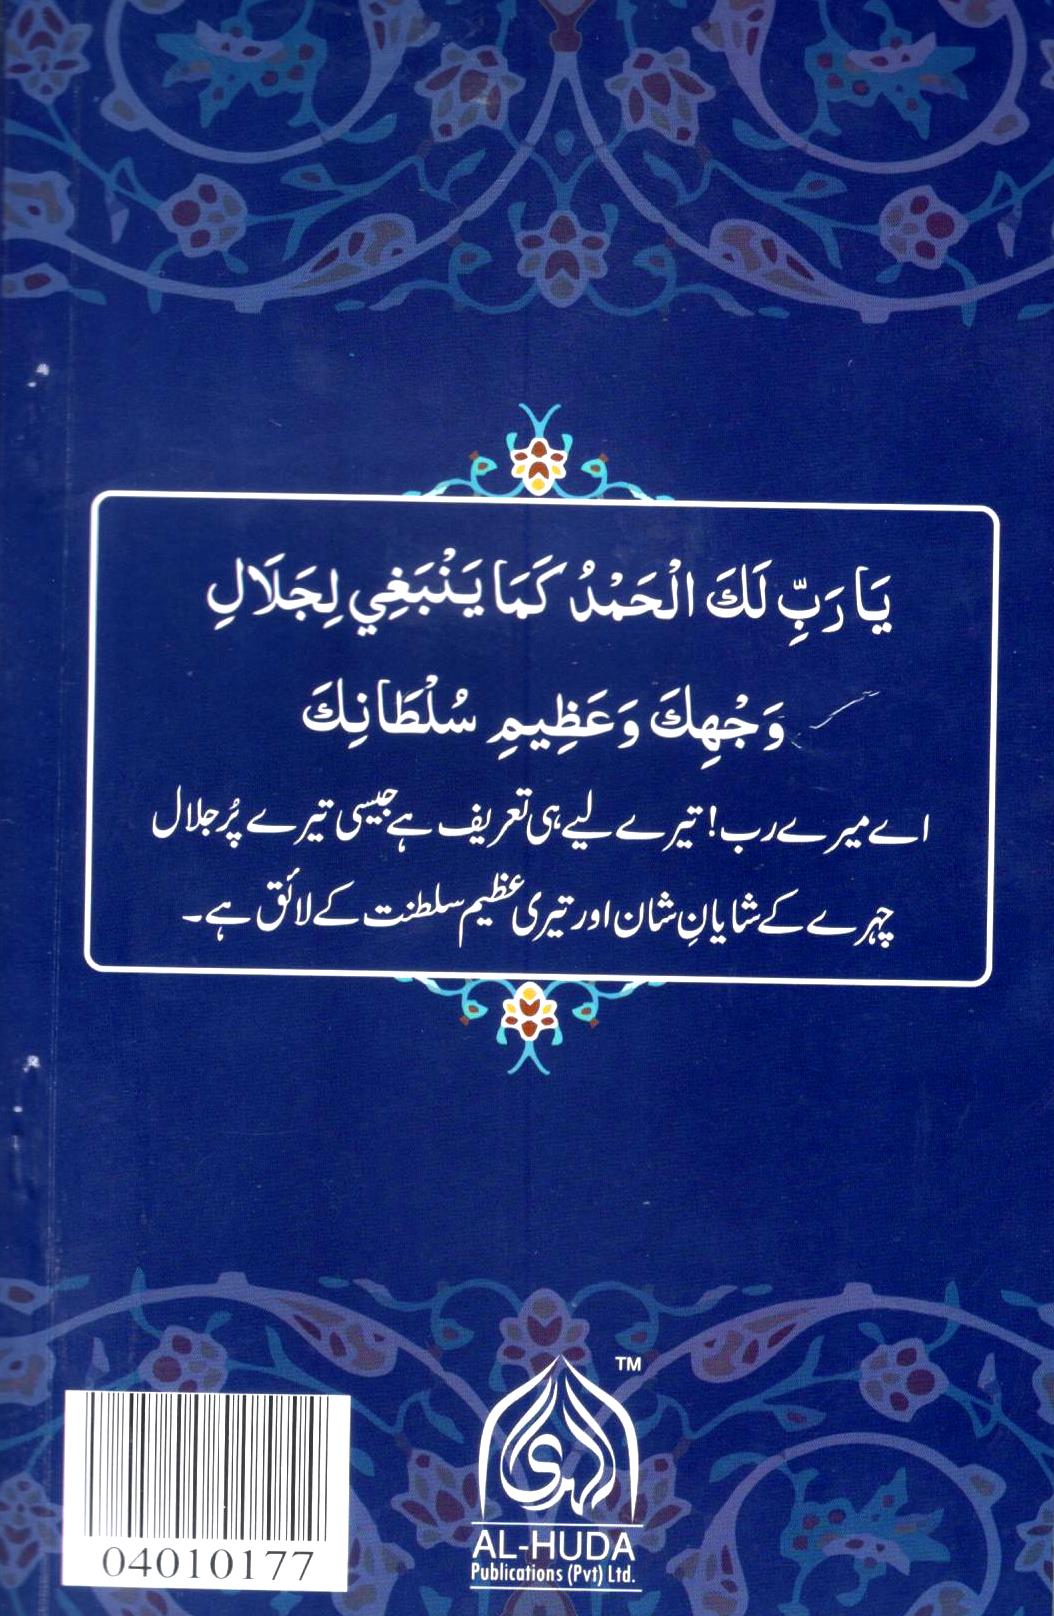 يَا رَبِّ لَكَ الْحَمْدُ كَمَا يَنْبَغِي لِجَلَالِ
وَجْهِكَ وَعَظِيمِ سُلْطَانِكَ
اے میرے رب! تیرے لیے ہی تعریف ہے جیسی تیرے پُر جلال
چہرے کے شایانِ شان اور تیری عظیم سلطنت کے لائق ہے۔
TM
الهدى
AL-HUDA
Publications (Pvt) Ltd.
04010177